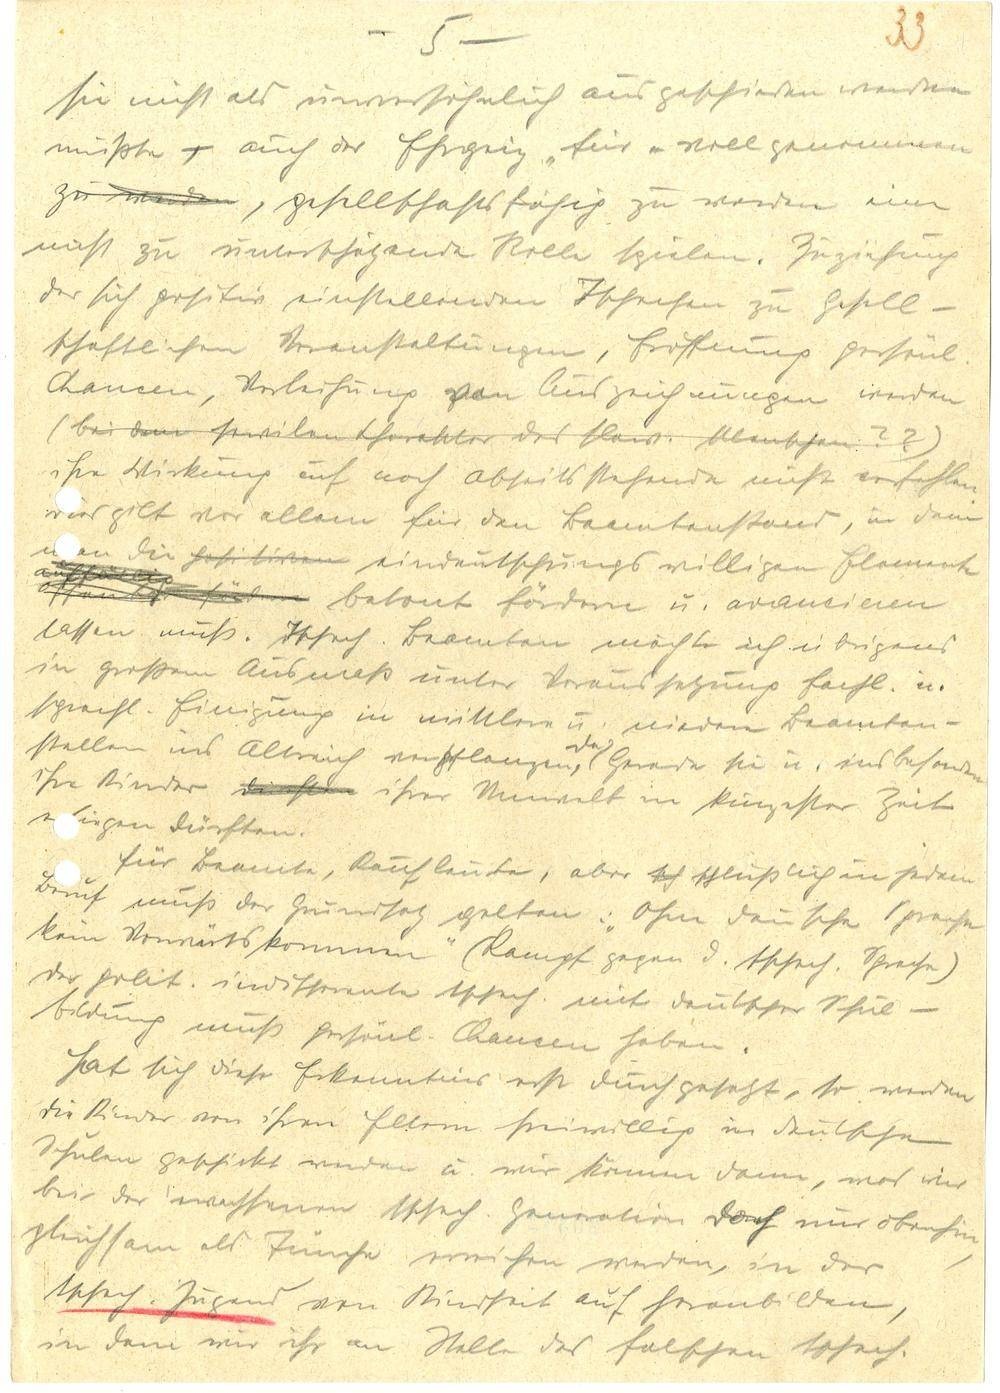 - 5 - 33
sie nicht als unversöhnlich ausgeschieden werden
müßte, auch der Ehrgeiz „für" voll genommen
zu werden, gesellschaftsfähig zu werden eine
nicht zu unterschätzende Rolle spielen. Zuziehung
der sich positiv einstellenden Tschechen zu gesell-
schaftlichen Veranstaltungen, Eröffnung persönl.
Chancen, Verleihung von Auszeichnungen werden
(bei dem servilen Charakter des slaw. Menschen ??)
ihre Wirkung auf noch abseitsstehende nicht verfehlen
dies gilt vor allem für den Beamtenstand, in dem
man die positiven eindeutschungswilligen Elemente
betont fördern u. avancieren
lassen muß. Tschech. Beamten möchte ich übrigens
in großem Ausmaß unter Voraussetzung fachl. u.
sprachl. Einigung in mittlere u. niedere Beamten-
stellen ins Altreich verpflanzen, da Gerade sie u. insbesondere
ihre Kinder ihrer Umwelt in kürzester Zeit
erliegen dürften.
Für Beamte, Kaufleute, aber schlüßlich in jedem
Beruf muß der Grundsatz gelten: „Ohne deutsche Sprache
kein Vorwärtskommen" (Kampf gegen d. tschech. Sprache)
der polit. indifferente Tschech. mit deutscher Schul-
bildung muß persönl. Chancen haben.
Hat sich diese Erkenntnis erst durchgesetzt, so werden
die Kinder von ihren Eltern freiwillig in deutsche
Schulen geschickt werden u. wir können dann, was wir
bei der erwachsenen tschech. Generation doch nur obenhin,
gleichsam als Tünche erreichen werden, in der
tschech. Jugend von Kindheit auf heranbilden,
in dem wir ihr an Stelle des falschen tschech.